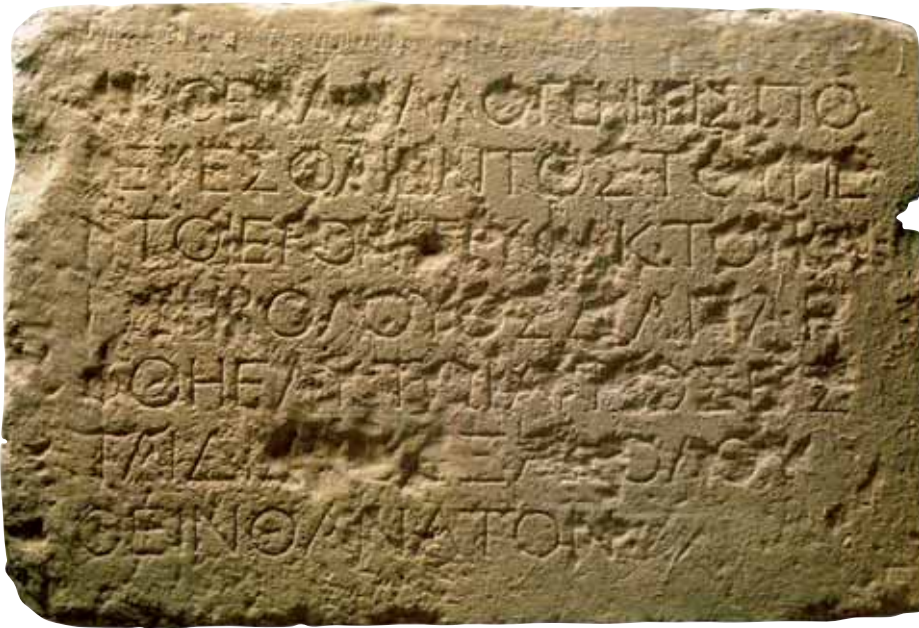 ΜΗΘΕΝΑΑΛΛΟΓΕΝΗΕΙΣΠΟ
ΡΕΥΕΣΘΑΙΕΝΤΟΣΤΟΥΠΕ
ΡΙΤΟΙΕΡΟΝΤΡΥΦΑΚΤΟΥΚΑΙ
ΠΕΡΙΒΟΛΟΥΟΣΔΑΝΛΗ
ΦΘΗΕΑΥΤΩΙΑΙΤΙΟΣΕΣ
ΤΑΙΔΙΑΤΟΕΞΑΚΟΛΟΥ
ΘΕΙΝΘΑΝΑΤΟΝ